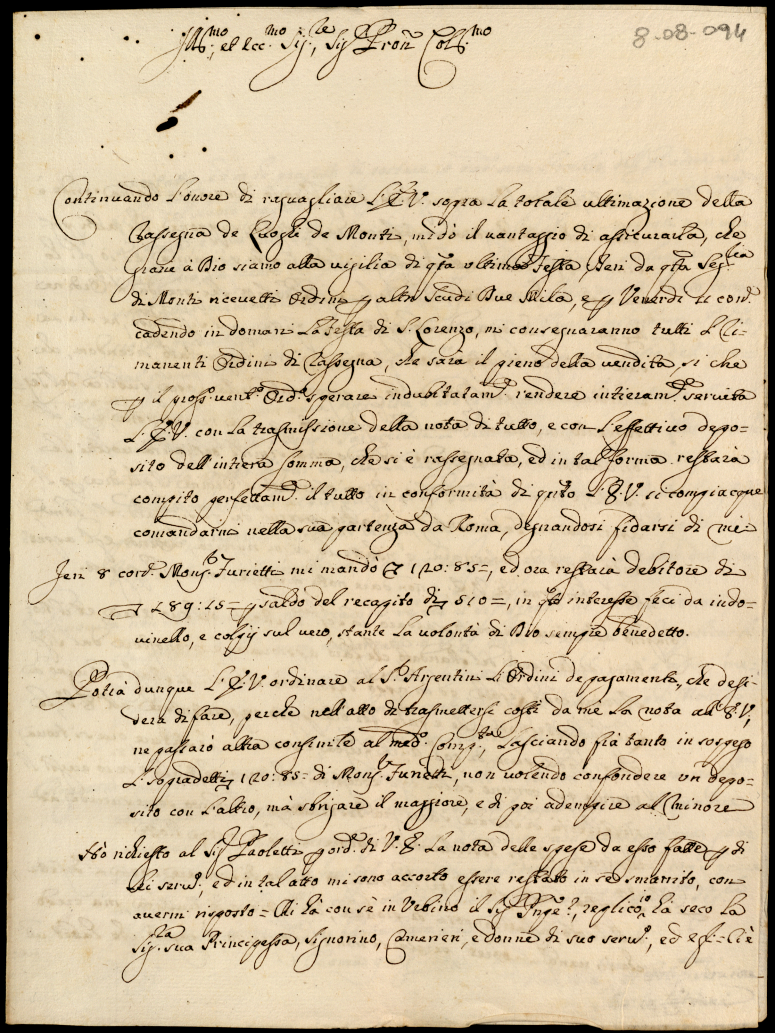 8-08-094
Ill.mo, et Ecc.mo Sig.re, Sig.r Pron Col.mo
Continuando l'onore di raguagliare l'E.V. sopra la totale ultimazione della
Rassegna de Luoghi de Monti, mi dò il vantaggio di assicurarla, che
grazie à Dio siamo alla vigilia di q.ta ultima Festa, Ieri da q.ta Seg.ria
di Monti ricevetti Ordini p altri Scudi Due Mila, e p Venerdi
cadendo in doman la Festa di S. Lorenzo, mi consegnaranno tutti li Ri-
manenti Ordini di Rassegna, che sarà il pieno della vendita, si che
p il pross. vent.o Ord.o sperare indubitatam.e rendere intieram.e servita
l'E.V. con la trasmissione della nota di tutto, e con l'effettivo depo-
sito dell'intiera Somma, che si è rassegnata, ed in tal forma restarà
compito perfettam.e il tutto in conformità di q.to l'E.V. si compiacque
comandarmi nella sua partenza da Roma, degnandosi fidarsi di me
Jeri 8 cor.e Mons.r Furietti mi mandò 120:85=, ed ora restarà debitore di
189:15= p saldo del recapito di 510=, in q.to interesse feci da indo-
vinello, e colpij sul vero, stante la volontà di Dio sempre benedetto.
Potrà dunque l'E.V. ordinare al S.r Argentini l'Ordini de pagamenti, che desi-
dera di fare, perche nell'atto di trasmettersi costì da mè la nota all'E.V.,
ne passarò altra consimile al med.o Comp.ta, lasciando frà tanto in sospeso
l. sopradetti 120:85= di Mons.r Furietti, non volendo confondere un depo-
sito con l'altro, mà sbrigare il maggiore, e di poi adempire al minore
Hò richiesto al Sig.r Paoletti p ord.e di V.E. la nota delle spese da esso fatte p di
Lei serv.o, ed in tal atto mi sono accorto essere restato in se smarrito, con
avermi risposto = Chi hà con sè in Urbino il Sig.r Pnpe?, replicò, hà seco la
Sig.ra sua Principessa, Signorino, Camerieri, e donne di suo serv.o, ed